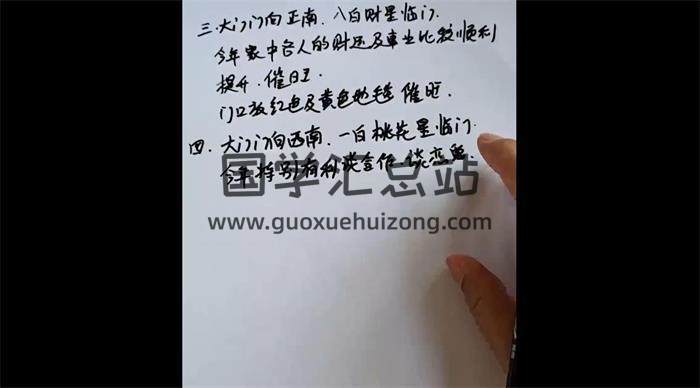 三.大门门向正南、八白财星临门.
今年家中各人的财运及事业比较顺利
提升.催旺.
门口放红色及黄色地毯 催旺.
四.大门门向西南、一白桃花星临门.
今年特别有利谈合作.谈恋爱.
国学汇总站
www.guoxuehuizong.com